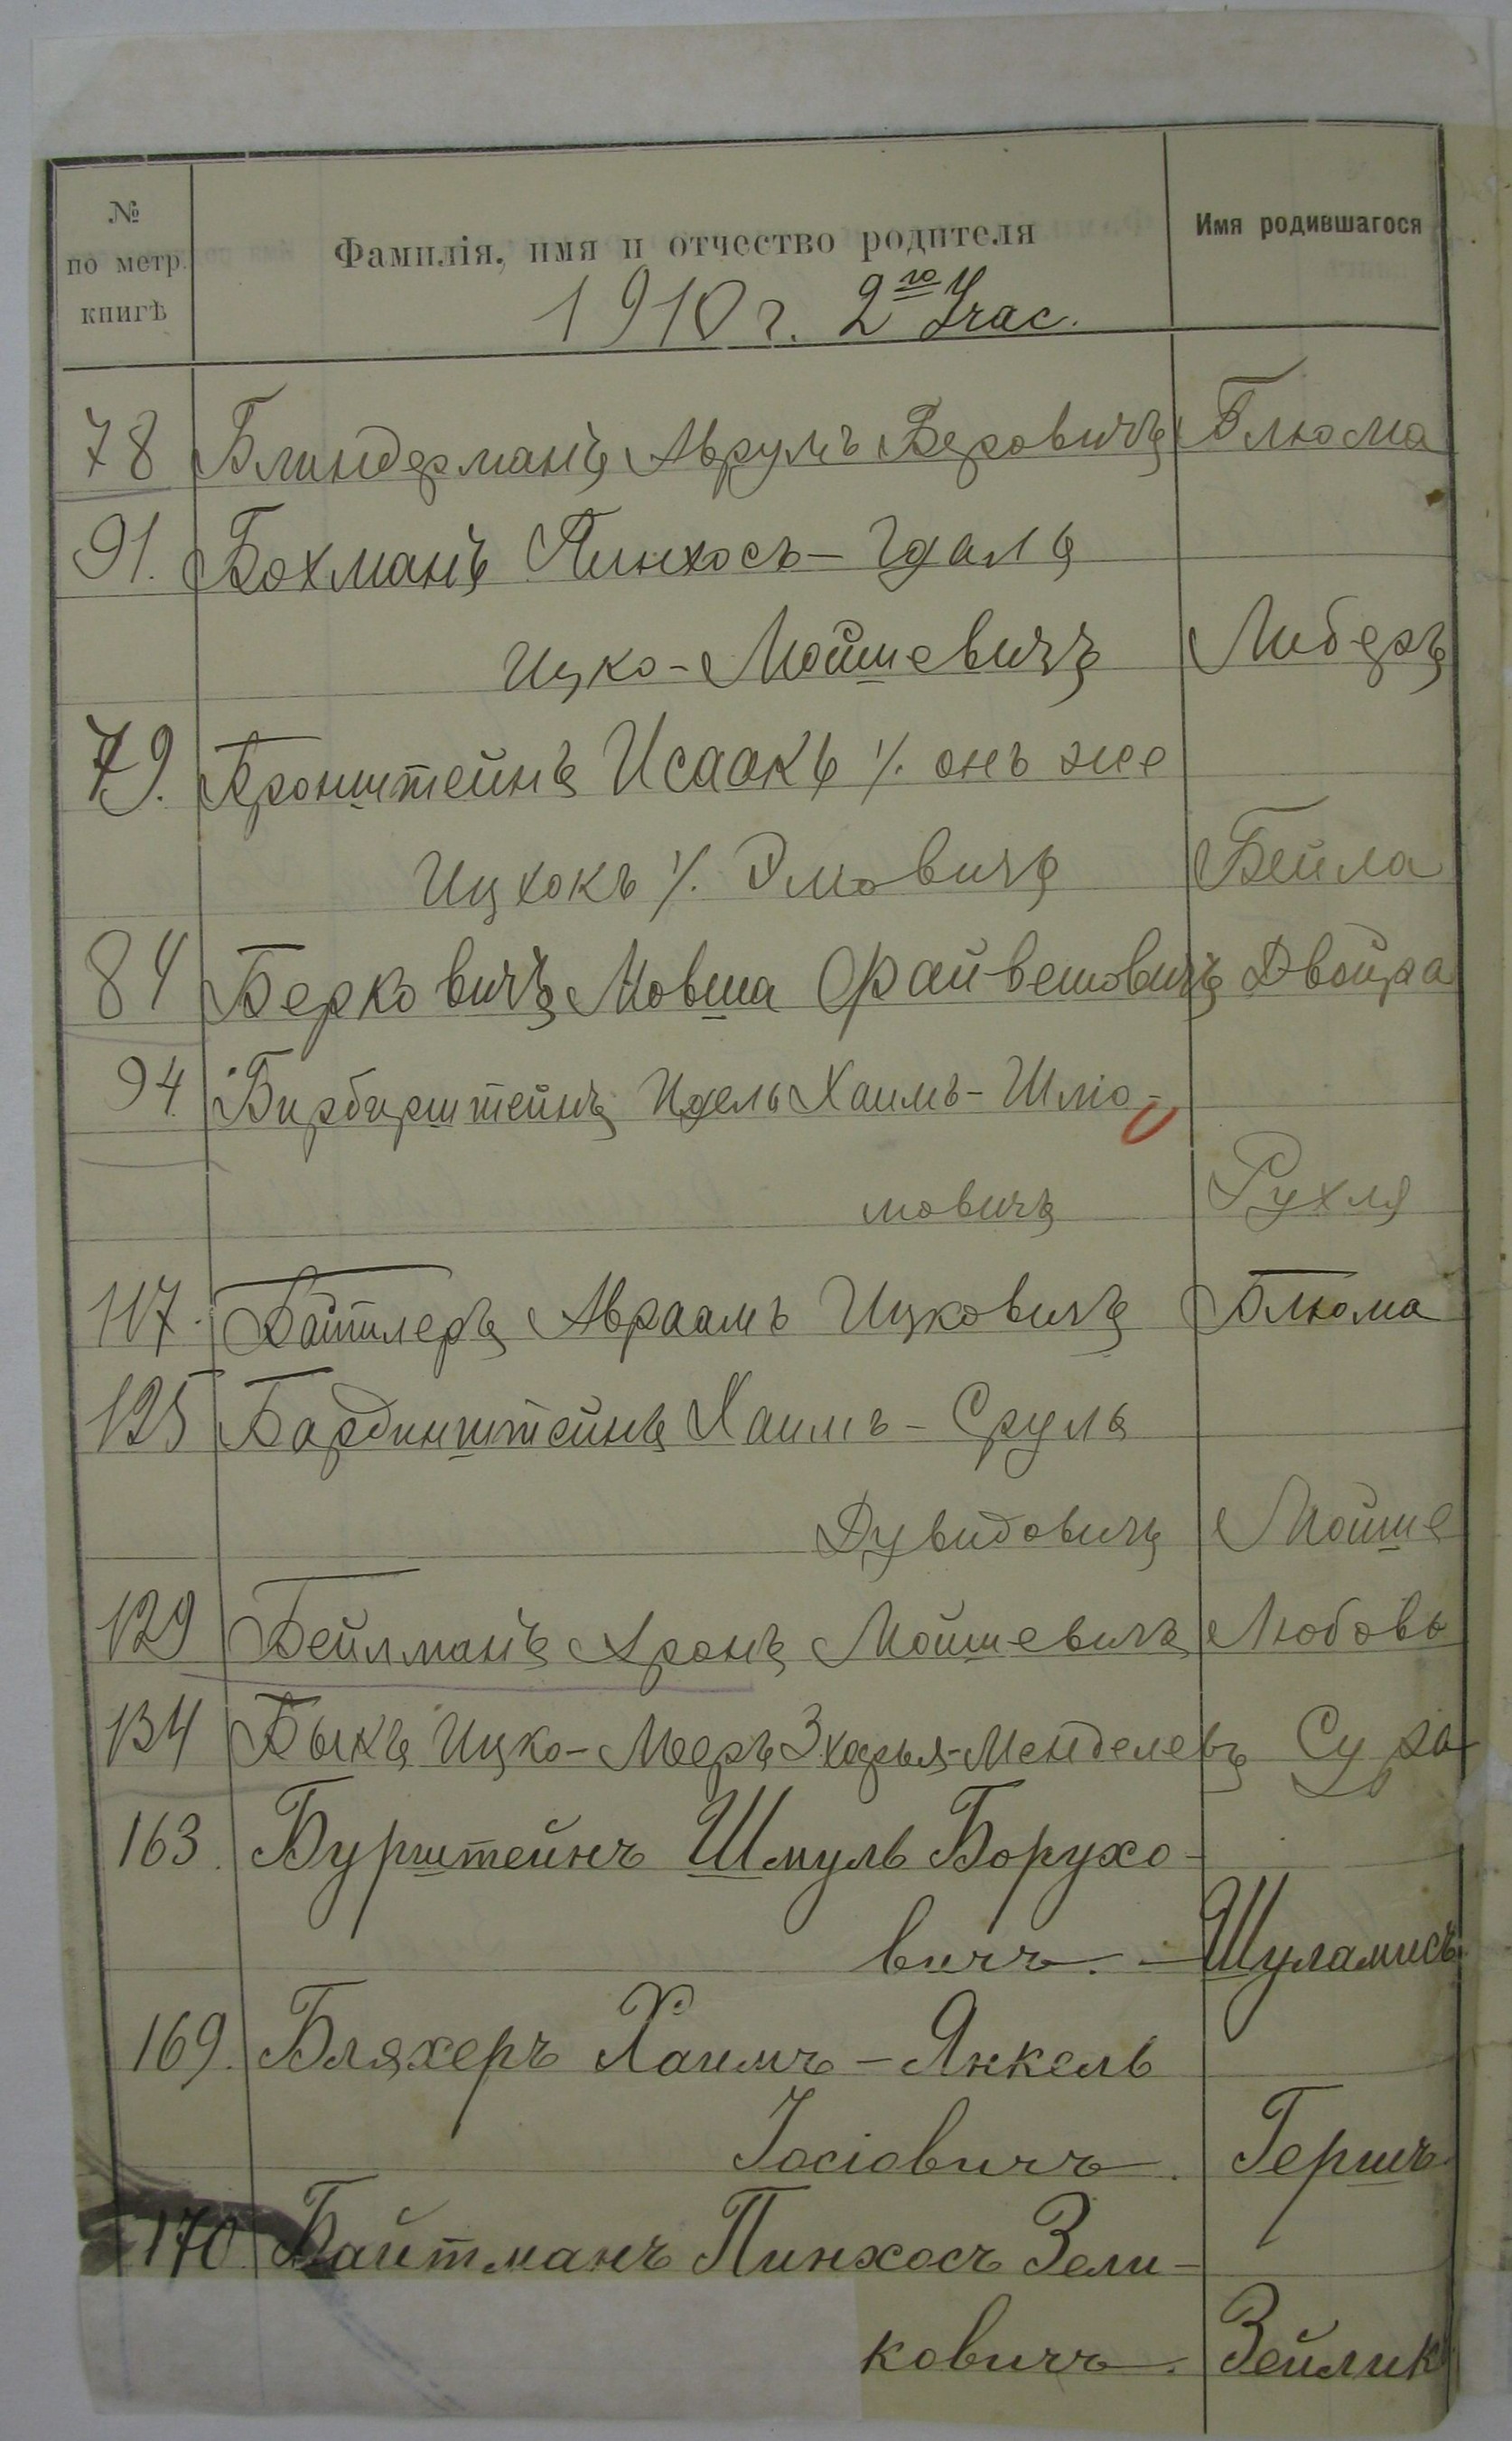 № по метр. книгѣ Фамилія, имя и отчество родителя Имя родившагося
1910 г. 2го Учас.
78 Блиндерманъ Аврумъ Беровичъ Блюма
91. Бохманъ Пинхосъ-Гдаль
Ицко-Мойшевичъ Либеръ
79. Бронштейнъ Исаакъ ⁒ онъ же
Ицхокъ ⁒ Эмовичъ Бейла
84 Берковичъ Мовша Файвешовичъ Двойра
94. Бирбирштейнъ Идель Хаимъ-Шлио-
мовичъ Рухля
117. Байтлеръ Авраамъ Ицковичъ Блюма
125 Бардинштейнъ Хаимъ-Сруль
Дувидовичъ Мойше
129 Бейлманъ Аронъ Мойшевичъ Любовь
134 Быкъ Ицко-Мееръ Зхарья-Менделевъ Сура
163. Бурштейнъ Шмуль Борухо-
вичъ. - Шуламисъ
169. Бляхеръ Хаимъ-Янкель
Іосіовичъ. Гершъ
170 Байтманъ Пинхосъ Зели-
ковичъ. Зейлик